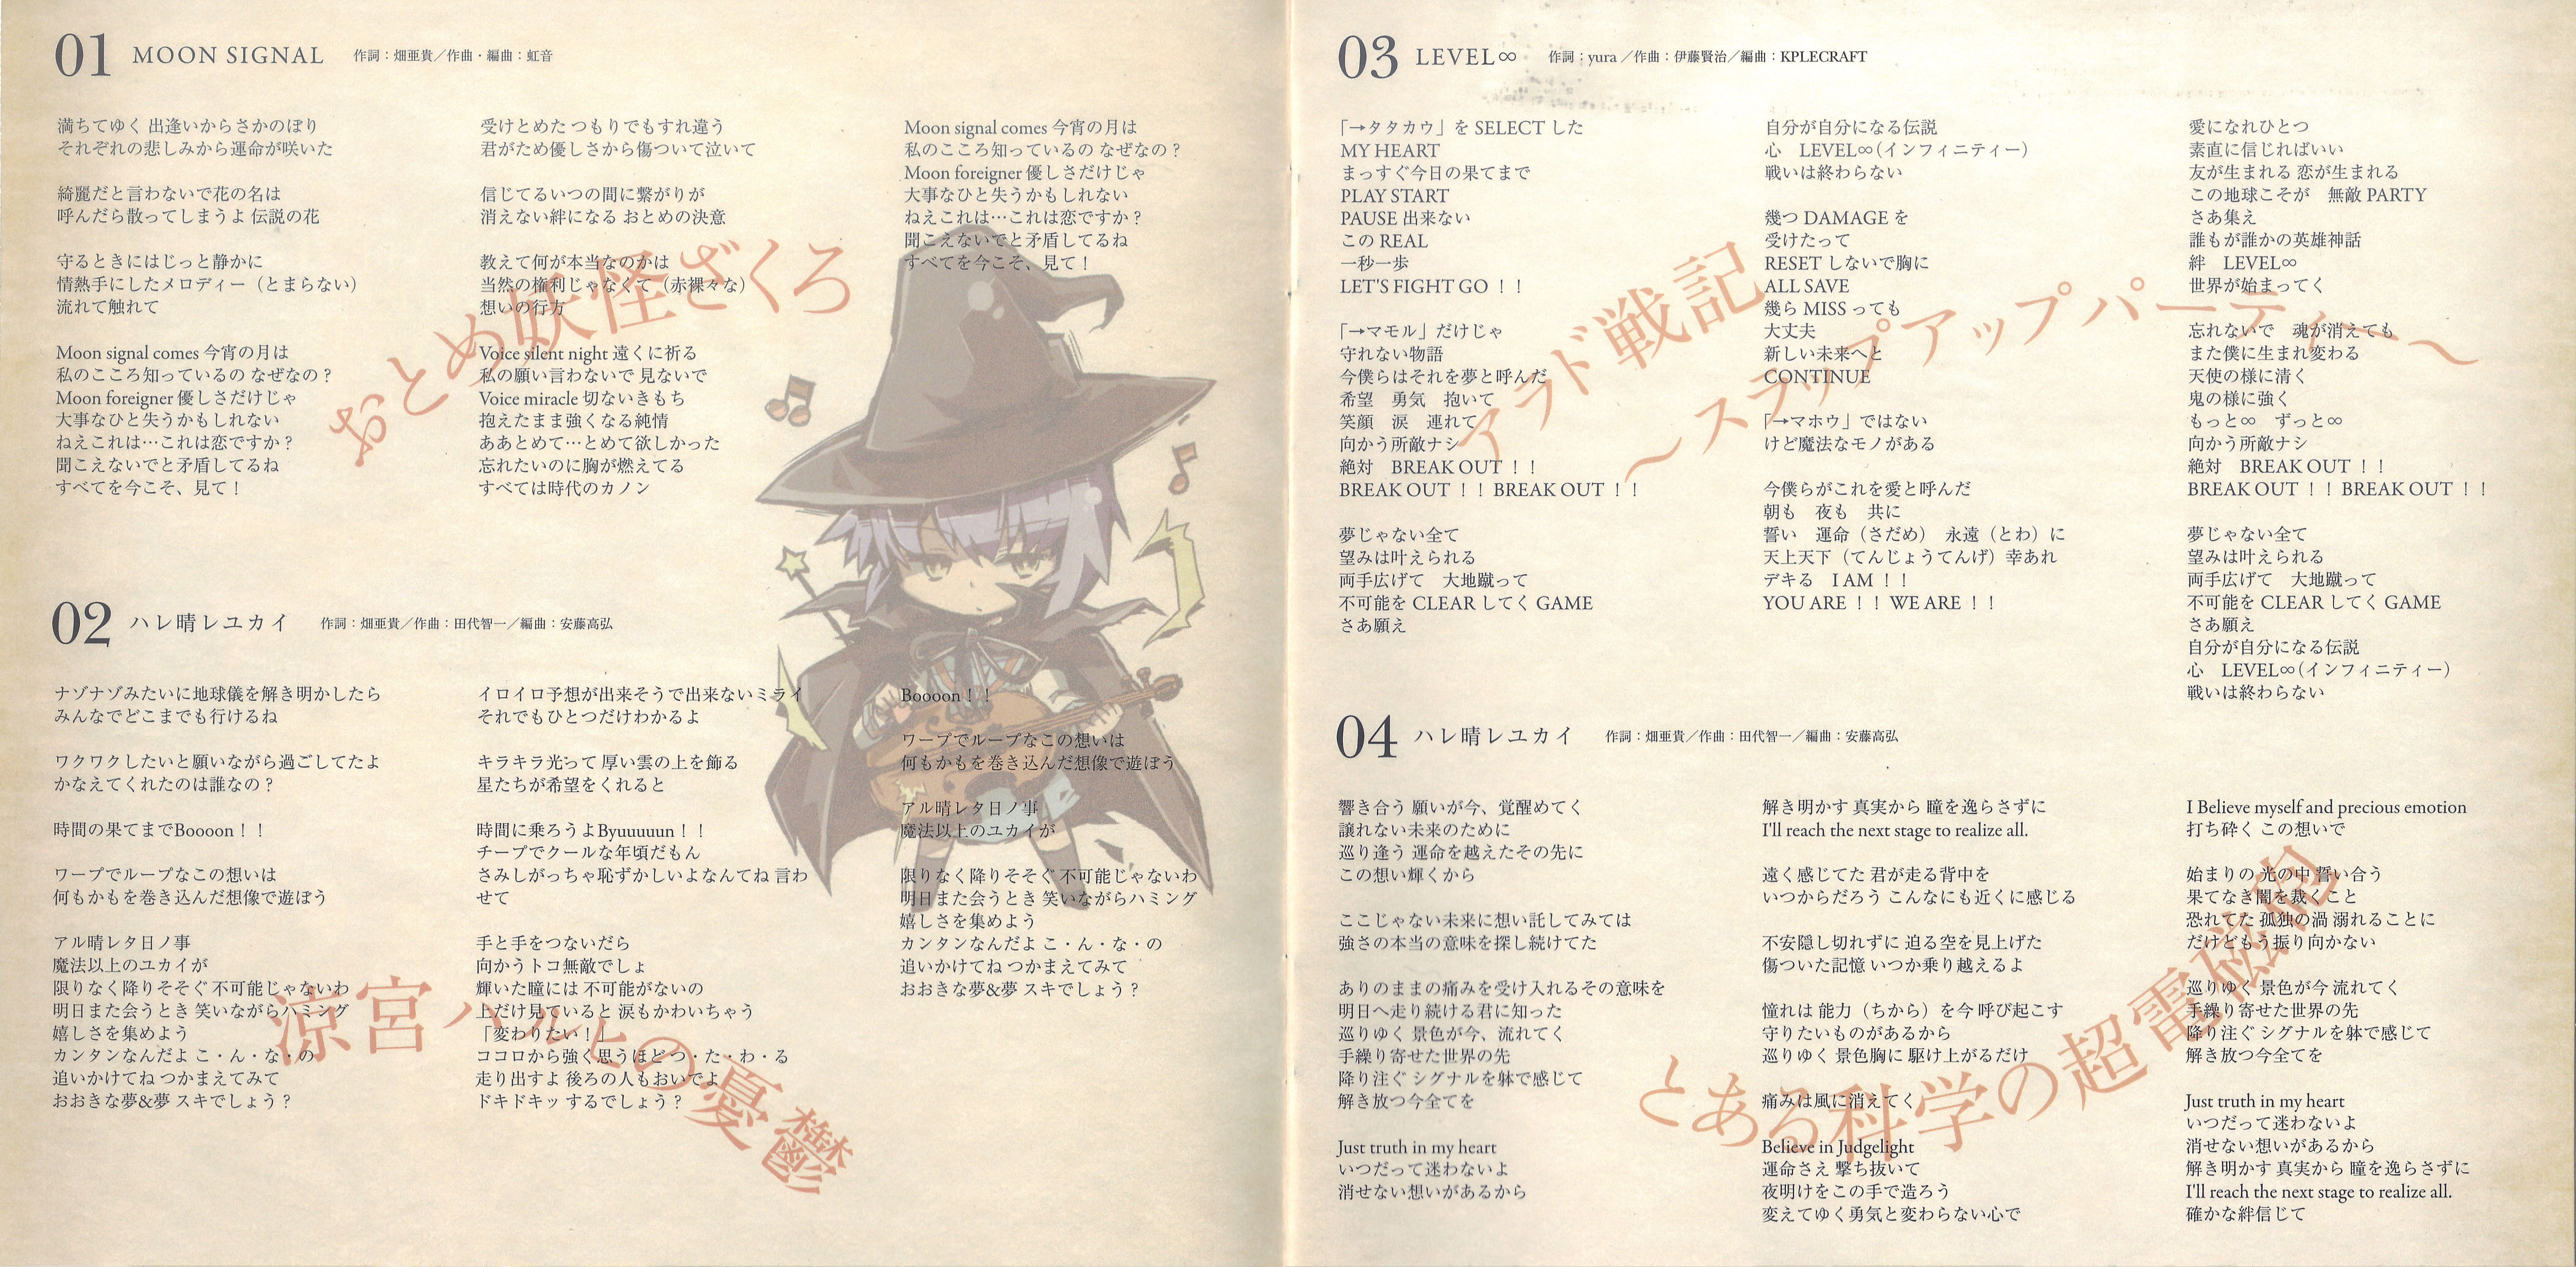 01 MOON SIGNAL 作詞：畑亜貴／作曲・編曲：虹音
満ちてゆく 出逢いからさかのぼり
それぞれの悲しみから運命が咲いた
綺麗だと言わないで花の名は
呼んだら散ってしまうよ 伝説の花
守るときにはじっと静かに
情熱手にしたメロディー（とまらない）
流れて触れて
Moon signal comes 今宵の月は
私のこころ知っているの なぜなの？
Moon foreigner 優しさだけじゃ
大事なひと失うかもしれない
ねえこれは…これは恋ですか？
聞こえないでと矛盾してるね
すべてを今こそ、見て！
受けとめた つもりでもすれ違う
君がため優しさから傷ついて泣いて
信じてるいつの間に繋がりが
消えない絆になる おとめの決意
教えて何が本当なのかは
当然の権利じゃなくて（赤裸々な）
想いの行方
Voice silent night 遠くに祈る
私の願い言わないで 見ないで
Voice miracle 切ないきもち
抱えたまま強くなる純情
ああとめて…とめて欲しかった
忘れたいのに胸が燃えてる
すべては時代のカノン
Moon signal comes 今宵の月は
私のこころ知っているの なぜなの？
Moon foreigner 優しさだけじゃ
大事なひと失うかもしれない
ねえこれは…これは恋ですか？
聞こえないでと矛盾してるね
すべてを今こそ、見て！
おとめ妖怪ざくろ
02 ハレ晴レユカイ 作詞：畑亜貴／作曲：田代智一／編曲：安藤高弘
ナゾナゾみたいに地球儀を解き明かしたら
みんなでどこまでも行けるね
ワクワクしたいと願いながら過ごしてたよ
かなえてくれたのは誰なの？
時間の果てまでBoooon！！
ワープでループなこの想いは
何もかもを巻き込んだ想像で遊ぼう
アル晴レタ日ノ事
魔法以上のユカイが
限りなく降りそそぐ 不可能じゃないわ
明日また会うとき 笑いながらハミング
嬉しさを集めよう
カンタンなんだよ こ・ん・な・の
追いかけてね つかまえてみて
おおきな夢&夢 スキでしょう？
イロイロ予想が出来そうで出来ないミライ
それでもひとつだけわかるよ
キラキラ光って 厚い雲の上を飾る
星たちが希望をくれると
時間に乗ろうよByuuuuun！！
チープでクールな年頃だもん
さみしがっちゃ恥ずかしいよなんてね 言わ
せて
手と手をつないだら
向かうトコ無敵でしょ
輝いた瞳には 不可能がないの
上だけ見ていると 涙もかわいちゃう
「変わりたい！」
ココロから強く思うほど つ・た・わ・る
走り出すよ 後ろの人もおいでよ
ドキドキッ するでしょう？
Boooon！！
ワープでループなこの想いは
何もかもを巻き込んだ想像で遊ぼう
アル晴レタ日ノ事
魔法以上のユカイが
限りなく降りそそぐ 不可能じゃないわ
明日また会うとき 笑いながらハミング
嬉しさを集めよう
カンタンなんだよ こ・ん・な・の
追いかけてね つかまえてみて
おおきな夢&夢 スキでしょう？
涼宮ハルヒの憂鬱
03 LEVEL∞ 作詞：yura／作曲：伊藤賢治／編曲：KPLECRAFT
「→タタカウ」を SELECT した
MY HEART
まっすぐ今日の果てまで
PLAY START
PAUSE 出来ない
この REAL
一秒一歩
LET'S FIGHT GO ！！
「→マモル」だけじゃ
守れない物語
今僕らはそれを夢と呼んだ
希望　勇気　抱いて
笑顔　涙　連れて
向かう所敵ナシ
絶対　BREAK OUT ！！
BREAK OUT ！！ BREAK OUT ！！
夢じゃない全て
望みは叶えられる
両手広げて　大地蹴って
不可能を CLEAR してく GAME
さあ願え
自分が自分になる伝説
心　LEVEL∞(インフィニティー)
戦いは終わらない
幾つ DAMAGE を
受けたって
RESET しないで胸に
ALL SAVE
幾ら MISS っても
大丈夫
新しい未来へと
CONTINUE
「→マホウ」ではない
けど魔法なモノがある
今僕らがこれを愛と呼んだ
朝も　夜も　共に
誓い　運命（さだめ）　永遠（とわ）に
天上天下（てんじょうてんげ）幸あれ
デキる　I AM ！！
YOU ARE ！！ WE ARE ！！
愛になれひとつ
素直に信じればいい
友が生まれる 恋が生まれる
この地球こそが　無敵 PARTY
さあ集え
誰もが誰かの英雄神話
絆　LEVEL∞
世界が始まってく
忘れないで　魂が消えても
また僕に生まれ変わる
天使の様に清く
鬼の様に強く
もっと∞　ずっと∞
向かう所敵ナシ
絶対　BREAK OUT ！！
BREAK OUT ！！ BREAK OUT ！！
夢じゃない全て
望みは叶えられる
両手広げて　大地蹴って
不可能を CLEAR してく GAME
さあ願え
自分が自分になる伝説
心　LEVEL∞(インフィニティー)
戦いは終わらない
アラド戦記
～スラップアップパーティー～
04 ハレ晴レユカイ 作詞：畑亜貴／作曲：田代智一／編曲：安藤高弘
響き合う 願いが今、覚醒めてく
譲れない未来のために
巡り逢う 運命を越えたその先に
この想い輝くから
ここじゃない未来に想い託してみては
強さの本当の意味を探し続けてた
ありのままの痛みを受け入れるその意味を
明日へ走り続ける君に知った
巡りゆく 景色が今、流れてく
手繰り寄せた世界の先
降り注ぐ シグナルを躰で感じて
解き放つ今全てを
Just truth in my heart
いつだって迷わないよ
消せない想いがあるから
解き明かす 真実から 瞳を逸らさずに
I'll reach the next stage to realize all.
遠く感じてた 君が走る背中を
いつからだろう こんなにも近くに感じる
不安隠し切れずに 迫る空を見上げた
傷ついた記憶 いつか乗り越えるよ
憧れは 能力（ちから）を今 呼び起こす
守りたいものがあるから
巡りゆく 景色胸に 駆け上がるだけ
痛みは風に消えてく
Believe in Judgelight
運命さえ 撃ち抜いて
夜明けをこの手で造ろう
変えてゆく勇気と変わらない心で
I Believe myself and precious emotion
打ち砕く この想いで
始まりの 光の中 誓い合う
果てなき闇を裁くこと
恐れてた 孤独の渦 溺れることに
だけどもう振り向かない
巡りゆく 景色が今 流れてく
手繰り寄せた世界の先
降り注ぐ シグナルを躰で感じて
解き放つ今全てを
Just truth in my heart
いつだって迷わないよ
消せない想いがあるから
解き明かす 真実から 瞳を逸らさずに
I'll reach the next stage to realize all.
確かな絆信じて
とある科学の超電磁砲